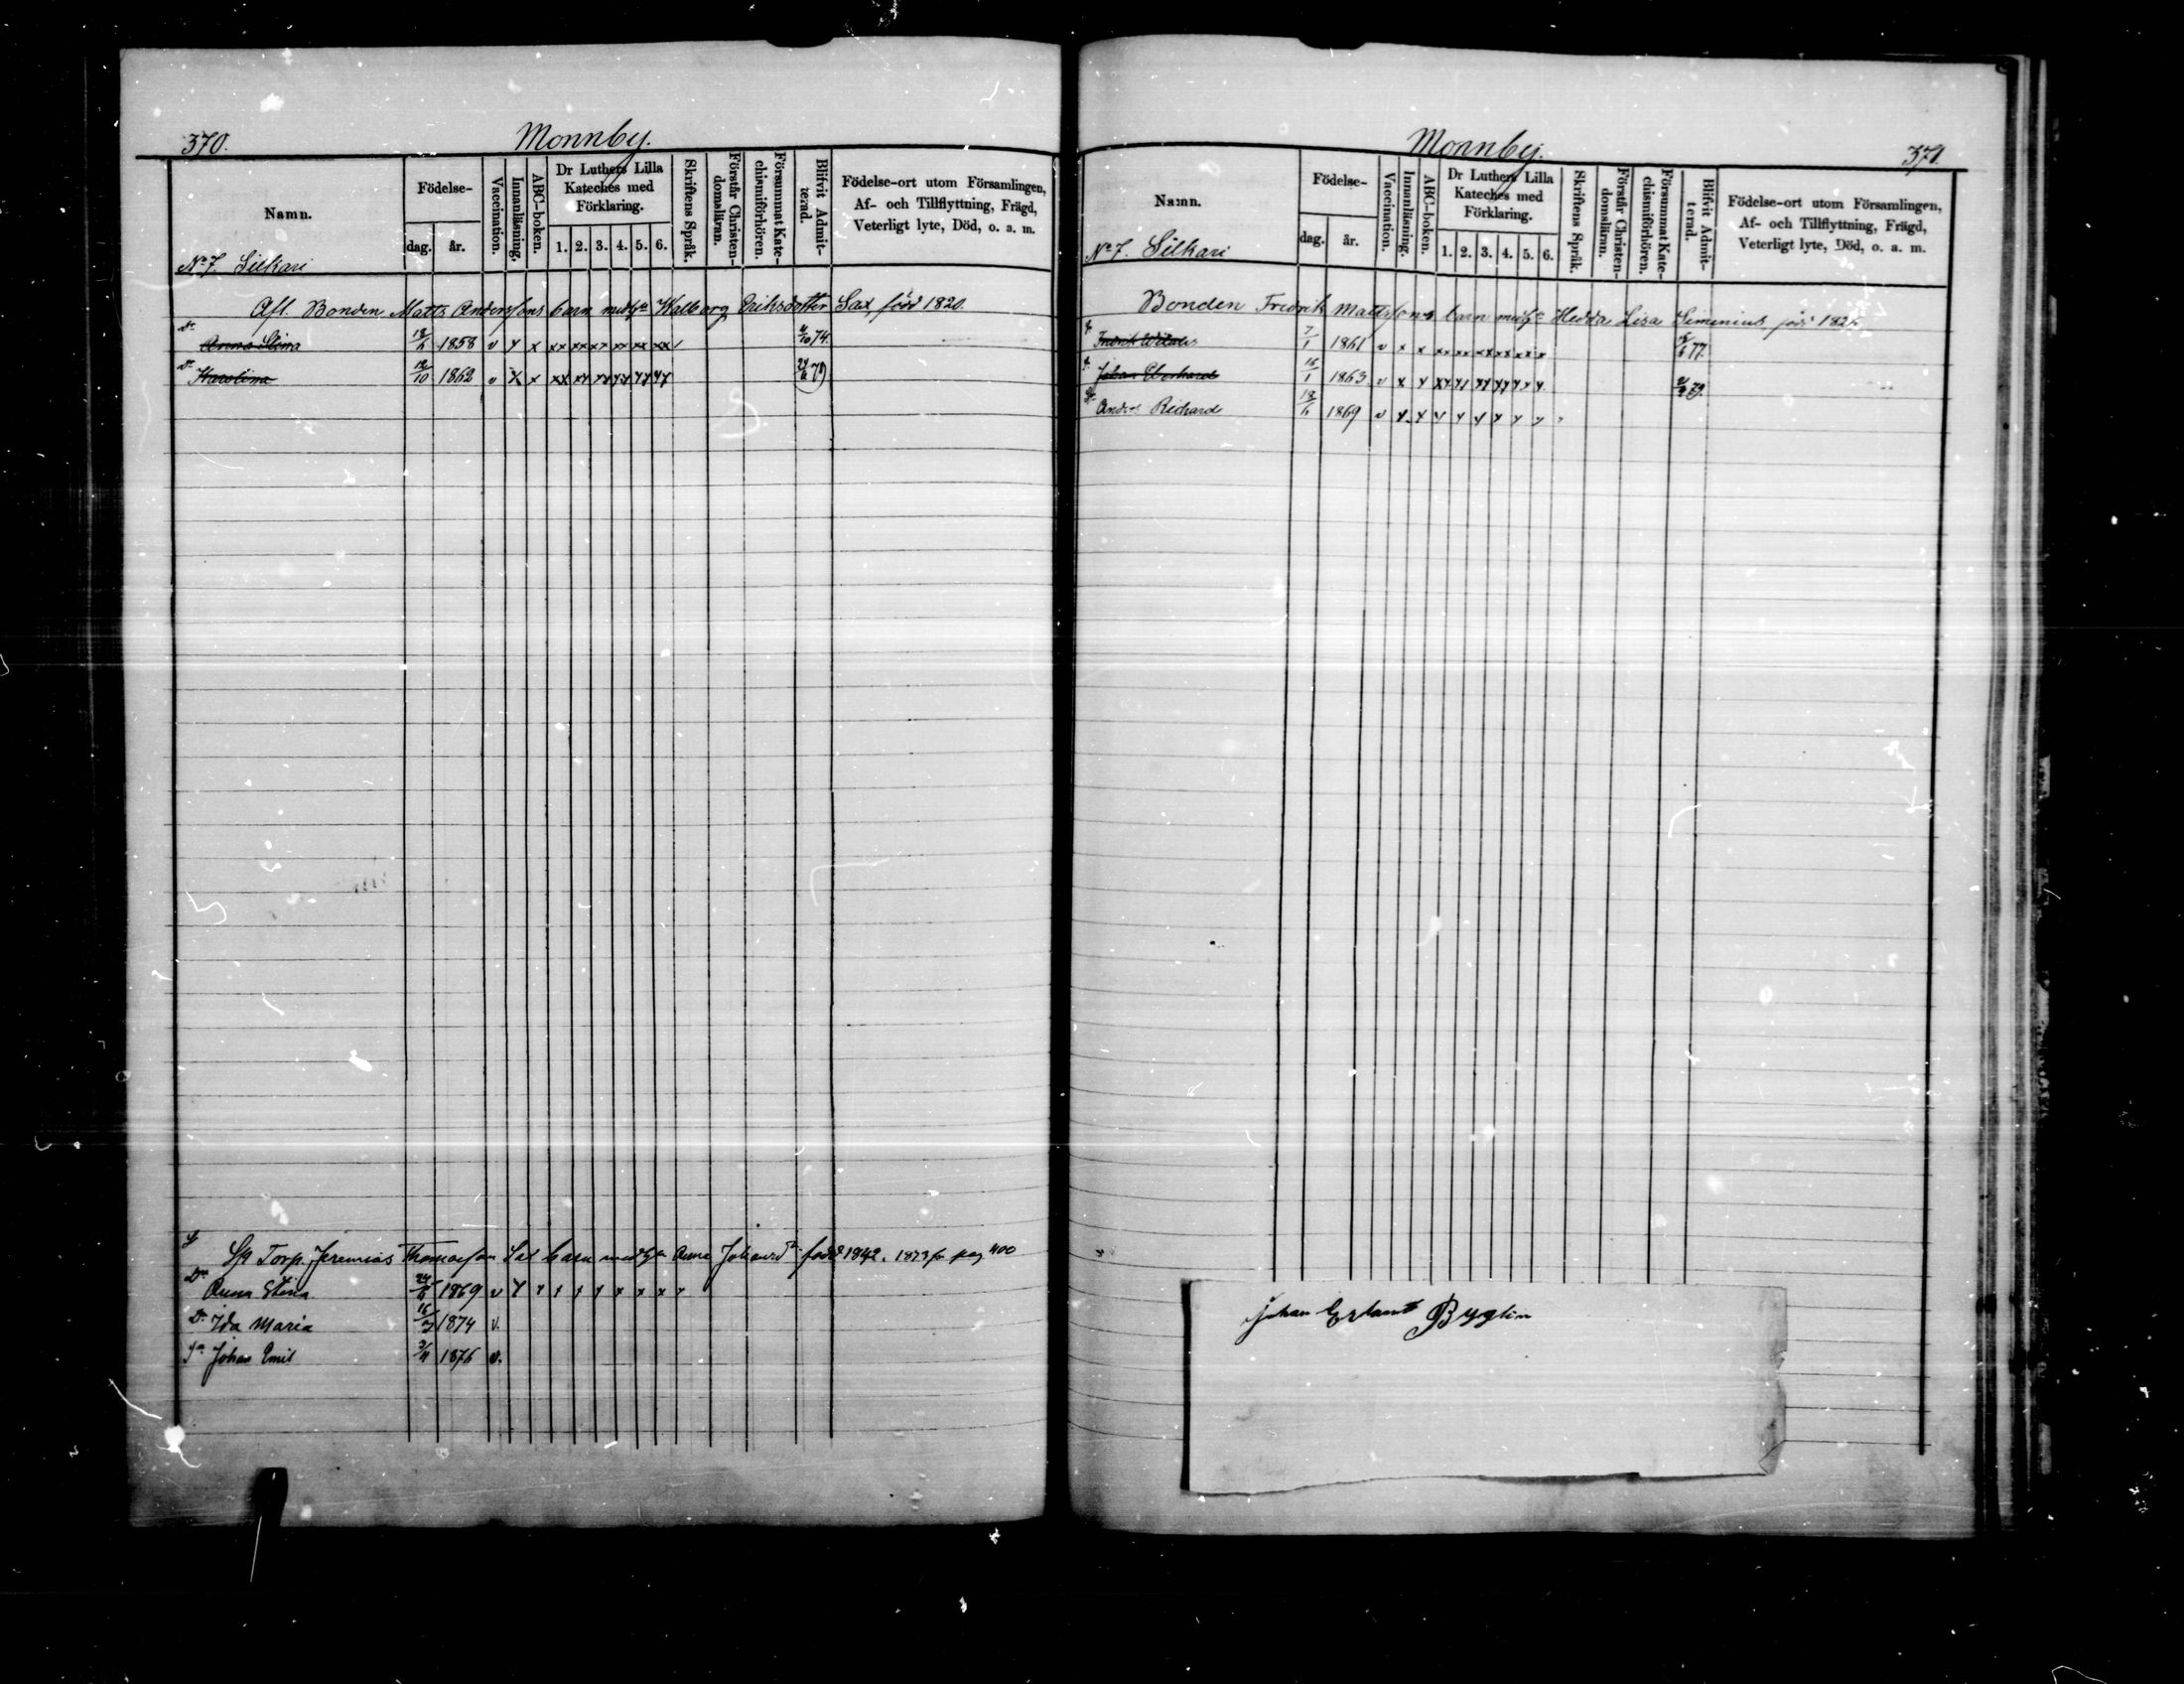 370.
Monnby.
Namn.
Födelse-
dag. år.
Vaccination.
Innanläsning.
ABC-boken.
Dr Luthers Lilla
Kateches med
Förklaring.
1. 2. 3. 4. 5. 6.
Skriftens Språk.
Förstår Christen-
domsläran.
Försummat Kate-
chismiförhören.
Blifvit Admit-
terad.
Födelse-ort utom Församlingen,
Af- och Tillflyttning, Frägd,
Veterligt lyte, Död, o. a. m.
No 7. Silkari
Afl. Bonden Matts Anderssons barn med h:u Walborg Eriksdotter Sax född 1820.
Dr Anna Stina 18/6 1858 v x x xx xx xx xx xx xx 4/10 74.
Dr Karolina 12/10 1862 v x x xx xx xx xx xx xx 79
Torp. Jeremias Thomasson Sax barn med h:u Anna Johansdr född 1842. 1873 fr pag 400
Dr Anna Stina 24/6 1869 v x x x x x x x x
Dr Ida Maria 16/7 1874 v.
Sn Johan Emil 3/11 1876 v.
371.
Monnby.
Namn.
Födelse-
dag. år.
Vaccination.
Innanläsning.
ABC-boken.
Dr Luthers Lilla
Kateches med
Förklaring.
1. 2. 3. 4. 5. 6.
Skriftens Språk.
Förstår Christen-
domsläran.
Försummat Kate-
chismiförhören.
Blifvit Admit-
terad.
Födelse-ort utom Församlingen,
Af- och Tillflyttning, Frägd,
Veterligt lyte, Död, o. a. m.
No 7. Silkari
Bonden Fredrik Mattssons barn med h:u Hedda Lisa Simenius född
Fredrik 7/1 1861 v x x xx xx xx xx xx x 77.
Johan Eberhard 16/1 1863 v x x xx xx xx xx x x 79.
Anders Richard 18/6 1869 v x x x x x x x x
Johan Erland Byglin